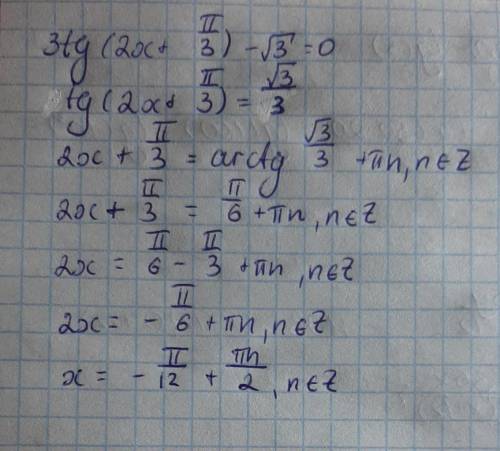 3tg(2x + π/3) - √3 = 0
tg(2x + π/3) = √3/3
2x + π/3 = arctg √3/3 + πn, n∈Z
2x + π/3 = π/6 + πn, n∈Z
2x = π/6 - π/3 + πn, n∈Z
2x = - π/6 + πn, n∈Z
x = - π/12 + πn/2, n∈Z